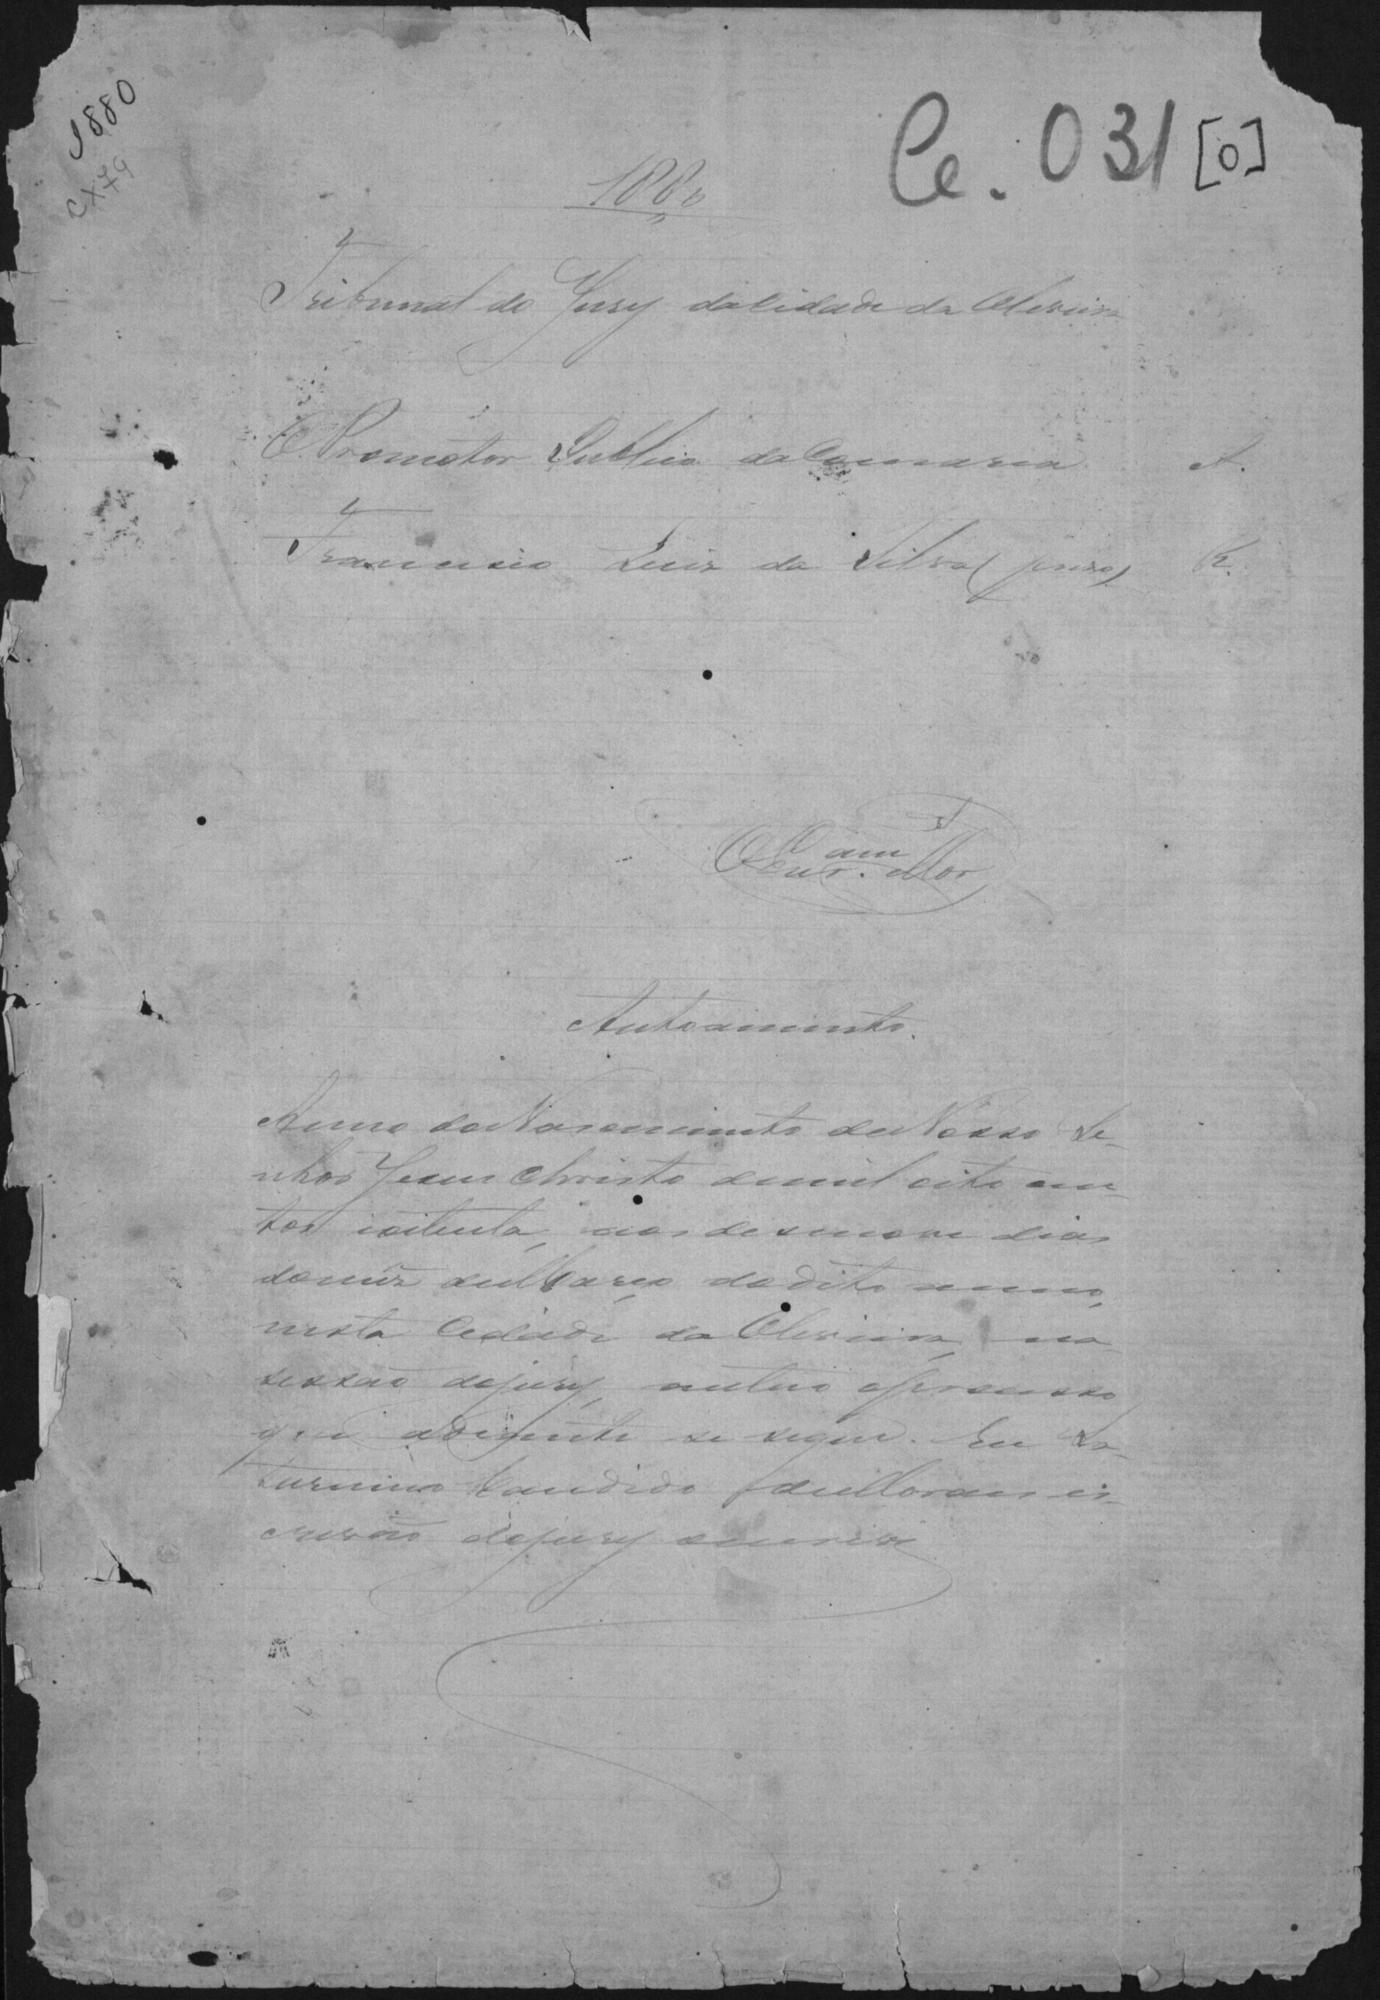 1880
CX79
Ce. 031 [0]
1880
Tribunal do Jury da Cidade da Oliveira
O Promotor Publico da Comarca A.
Francisco Luiz da Silva (preso) R.
Autoamento.
Anno do Nascimento de Nosso Se-
nhor Jesus Christo de mil oito cen-
tos e oitenta, aos desenove dias
do mez de Março do dito anno,
nesta Cidade da Oliveira, na
sessão do jury, autuo o processo
que adiante se segue. Eu Sa-
turnino Candido de Moraes es-
crivão do jury escrevi